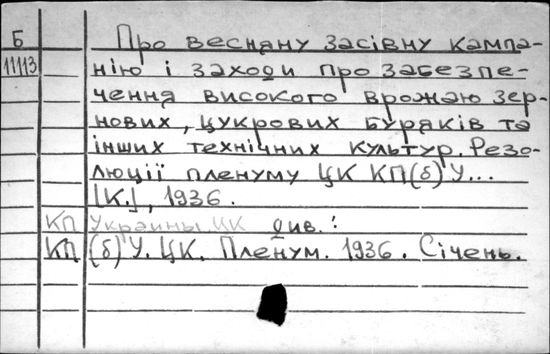 Б Про весняну засівну кампа-
11113 нію і заходи про забезпе-
чення високого врожаю зер-
нових, цукрових буряків та
інших технічних культур. Резо-
люції пленуму ЦК КП(б)У...
[К.], 1936.
КП Украины ЦК див.:
КП (б)У. ЦК. Пленум. 1936. Січень.